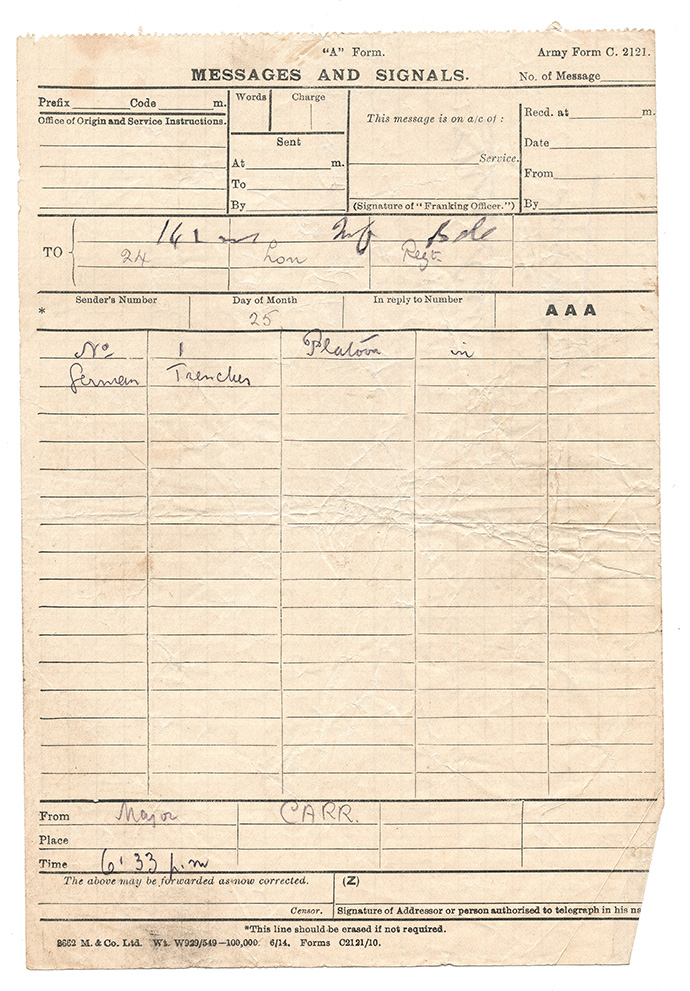 "A" Form. Army Form C. 2121.
MESSAGES AND SIGNALS. No. of Message
Prefix Code m. Words Charge This message is on a/c of : Recd. at m.
Office of Origin and Service Instructions.
Sent Date
At m. Service. From
To
By (Signature of "Franking Officer.") By
Inf Bde
TO 24 Lon Regt.
Sender's Number Day of Month In reply to Number AAA
* 25
No 1 Platoon in
German Trenches
From Major CARR.
Place
Time 6.33 p.m
The above may be forwarded as now corrected. (Z)
Censor. Signature of Addressor or person authorised to telegraph in his na
*This line should be erased if not required.
8662 M. & Co. Ltd. Wt. W929/549—100,000. 6/14. Forms C2121/10.